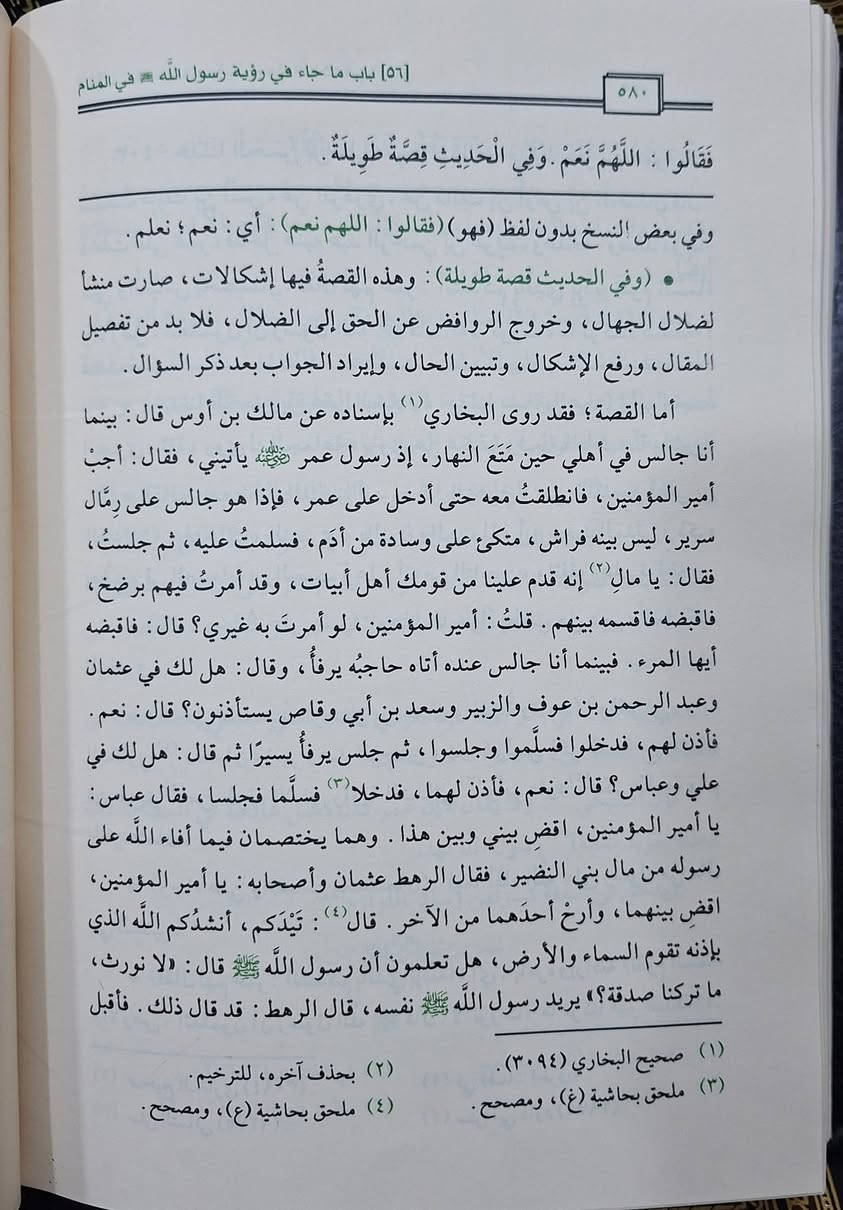 [٥٦] باب ما جاء في رؤية رسول اللَّه ﷺ في المنام
٥٨٠
فَقَالُوا : اللَّهُمَّ نَعَمْ . وَفِي الْحَدِيثِ قِصَّةٌ طَوِيلَةٌ .
وفي بعض النسخ بدون لفظ (فهو) (فقالوا : اللهم نعم) : أي : نعم؛ نعلم .
• (وفي الحديث قصة طويلة) : وهذه القصةُ فيها إشكالات، صارت منشأ
لضلال الجهال، وخروج الروافض عن الحق إلى الضلال، فلا بد من تفصيل
المقال، ورفع الإشكال، وتبيين الحال، وإيراد الجواب بعد ذكر السؤال .
أما القصة؛ فقد روى البخاري(١) بإسناده عن مالك بن أوس قال: بينما
أنا جالس في أهلي حين مَتَعَ النهار، إذ رسول عمر رضي الله عنه يأتيني، فقال: أجبْ
أمير المؤمنين، فانطلقتُ معه حتى أدخل على عمر، فإذا هو جالس على رِمَّال
سرير، ليس بينه فراش، متكئ على وسادة من أدَم، فسلمتُ عليه، ثم جلستُ،
فقال: يا مالِ(٢) إنه قدم علينا من قومك أهل أبيات، وقد أمرتُ فيهم برضخ،
فاقبضه فاقسمه بينهم . قلتُ: أمير المؤمنين، لو أمرتَ به غيري؟ قال: فاقبضه
أيها المرء . فبينما أنا جالس عنده أتاه حاجبُه يرفأُ، وقال: هل لك في عثمان
وعبد الرحمن بن عوف والزبير وسعد بن أبي وقاص يستأذنون؟ قال: نعم .
فأذن لهم، فدخلوا فسلَّموا وجلسوا، ثم جلس يرفأُ يسيرًا ثم قال: هل لك في
علي وعباس؟ قال: نعم، فأذن لهما، فدخلا(٣) فسلَّما فجلسا، فقال عباس:
يا أمير المؤمنين، اقضِ بيني وبين هذا . وهما يختصمان فيما أفاء اللَّه على
رسوله من مال بني النضير، فقال الرهط عثمان وأصحابه: يا أمير المؤمنين،
اقضِ بينهما، وأرحْ أحدَهما من الآخر . قال(٤): تَيْدَكم، أنشدُكم اللَّه الذي
بإذنه تقوم السماء والأرض، هل تعلمون أن رسول اللَّه ﷺ قال: «لا نورث،
ما تركنا صدقة؟» يريد رسول اللَّه ﷺ نفسه، قال الرهط: قد قال ذلك . فأقبل
(١) صحيح البخاري (٣٠٩٤).
(٢) بحذف آخره، للترخيم.
(٣) ملحق بحاشية (غ)، ومصحح.
(٤) ملحق بحاشية (ع)، ومصحح.